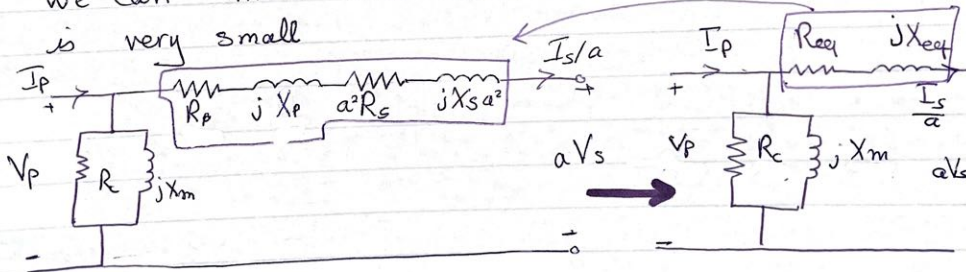 is very small
Ip
+
Rp
jXp
a²Rs
jXsa²
Is/a
+
Vp
Rc
jXm
aVs
-
-
Ip
+
Req
jXeq
Is/a
Vp
Rc
jXm
aVs
-